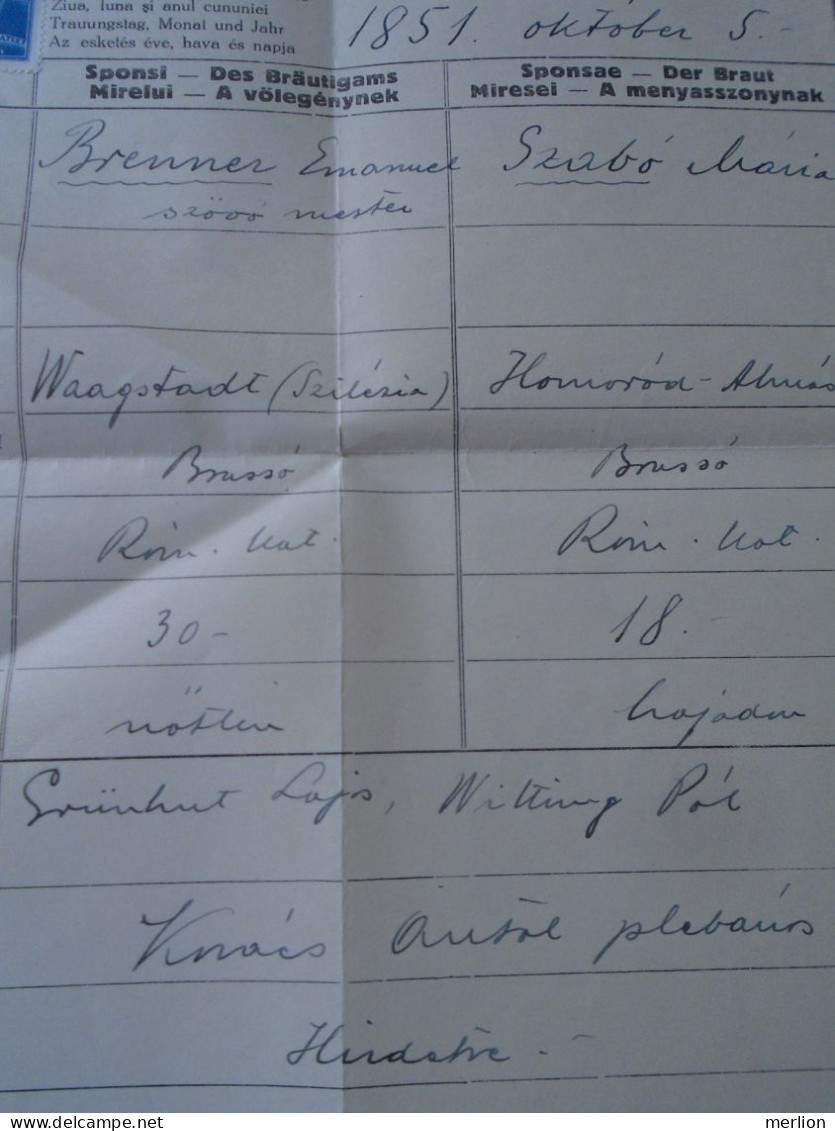 Ziua, luna și anul cununiei
Trauungstag, Monat und Jahr
Az esketés éve, hava és napja
1851. október 5.-
Sponsi — Des Bräutigams
Mirelui — A vőlegénynek
Sponsae — Der Braut
Miresei — A menyasszonynak
Brenner Emanuel
szövő mester
Szabó Mária
Waagstadt (Szilézia)
Homoród-Almás
Brassó
Brassó
Róm. kat.
Róm. kat.
30-
18.-
nőtlen
hajadon
Grünhut Lajos, Witting Pál
Kovács Antal plebános
Hirdetve.-
merlion
delcampe.net